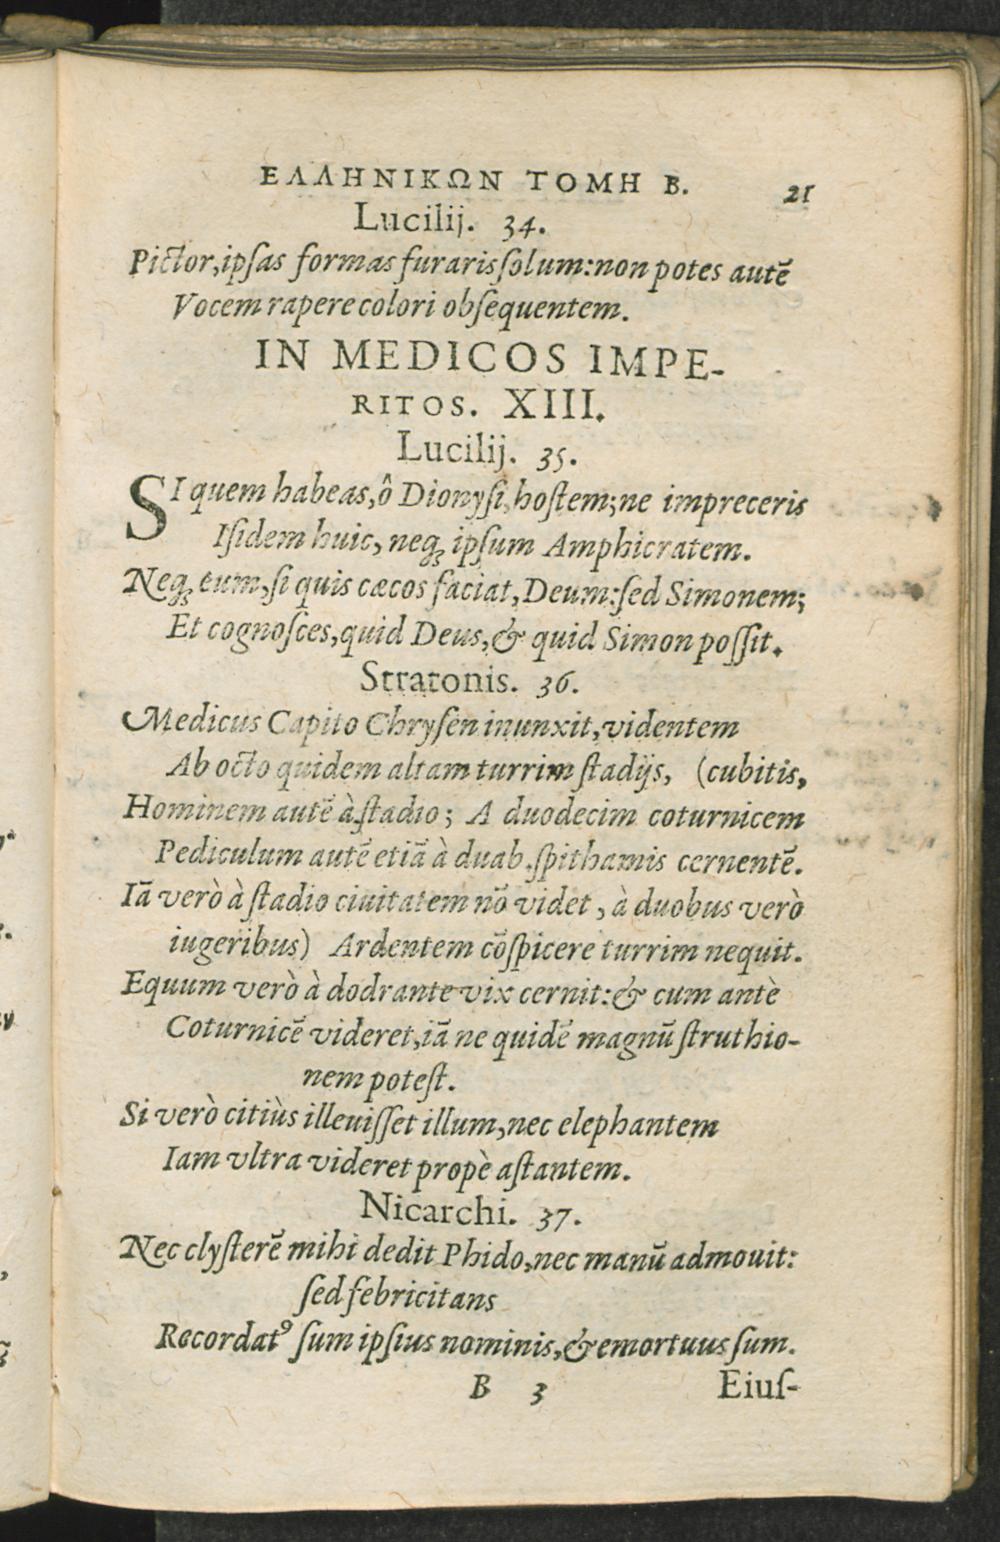 ΕΛΛΗΝΙΚΩΝ ΤΟΜΗ Β. 21
Lucilij. 34.
Pictor,ipſas formas furaris ſolum:non potes autẽ
Vocem rapere colori obſequentem.
IN MEDICOS IMPE-
RITOS. XIII.
Lucilij. 35.
SI quem habeas,ô Dionyſi,hoſtem;ne impreceris
Iſidem huic, neq; ipſum Amphicratem.
Neq; eum,ſi quis cæcos faciat,Deum:ſed Simonem;
Et cognoſces,quid Deus,& quid Simon poſſit.
Stratonis. 36.
Medicus Capito Chryſen inunxit,videntem
Ab octo quidem altam turrim ſtadijs, (cubitis,
Hominem autẽ à ſtadio; A duodecim coturnicem
Pediculum autẽ etiã à duab. ſpithamis cernentẽ.
Iã verò à ſtadio ciuitatem nõ videt, à duobus verò
iugeribus) Ardentem cõſpicere turrim nequit.
Equum verò à dodrante vix cernit:& cum antè
Coturnicẽ videret,iã ne quidẽ magnũ ſtruthio-
nem poteſt.
Si verò citiùs illeuiſſet illum,nec elephantem
Iam vltra videret propè aſtantem.
Nicarchi. 37.
Nec clyſterẽ mihi dedit Phido,nec manũ admouit:
ſed febricitans
Recordatꝰ ſum ipſius nominis,& emortuus ſum.
B 3 Eiuſ-